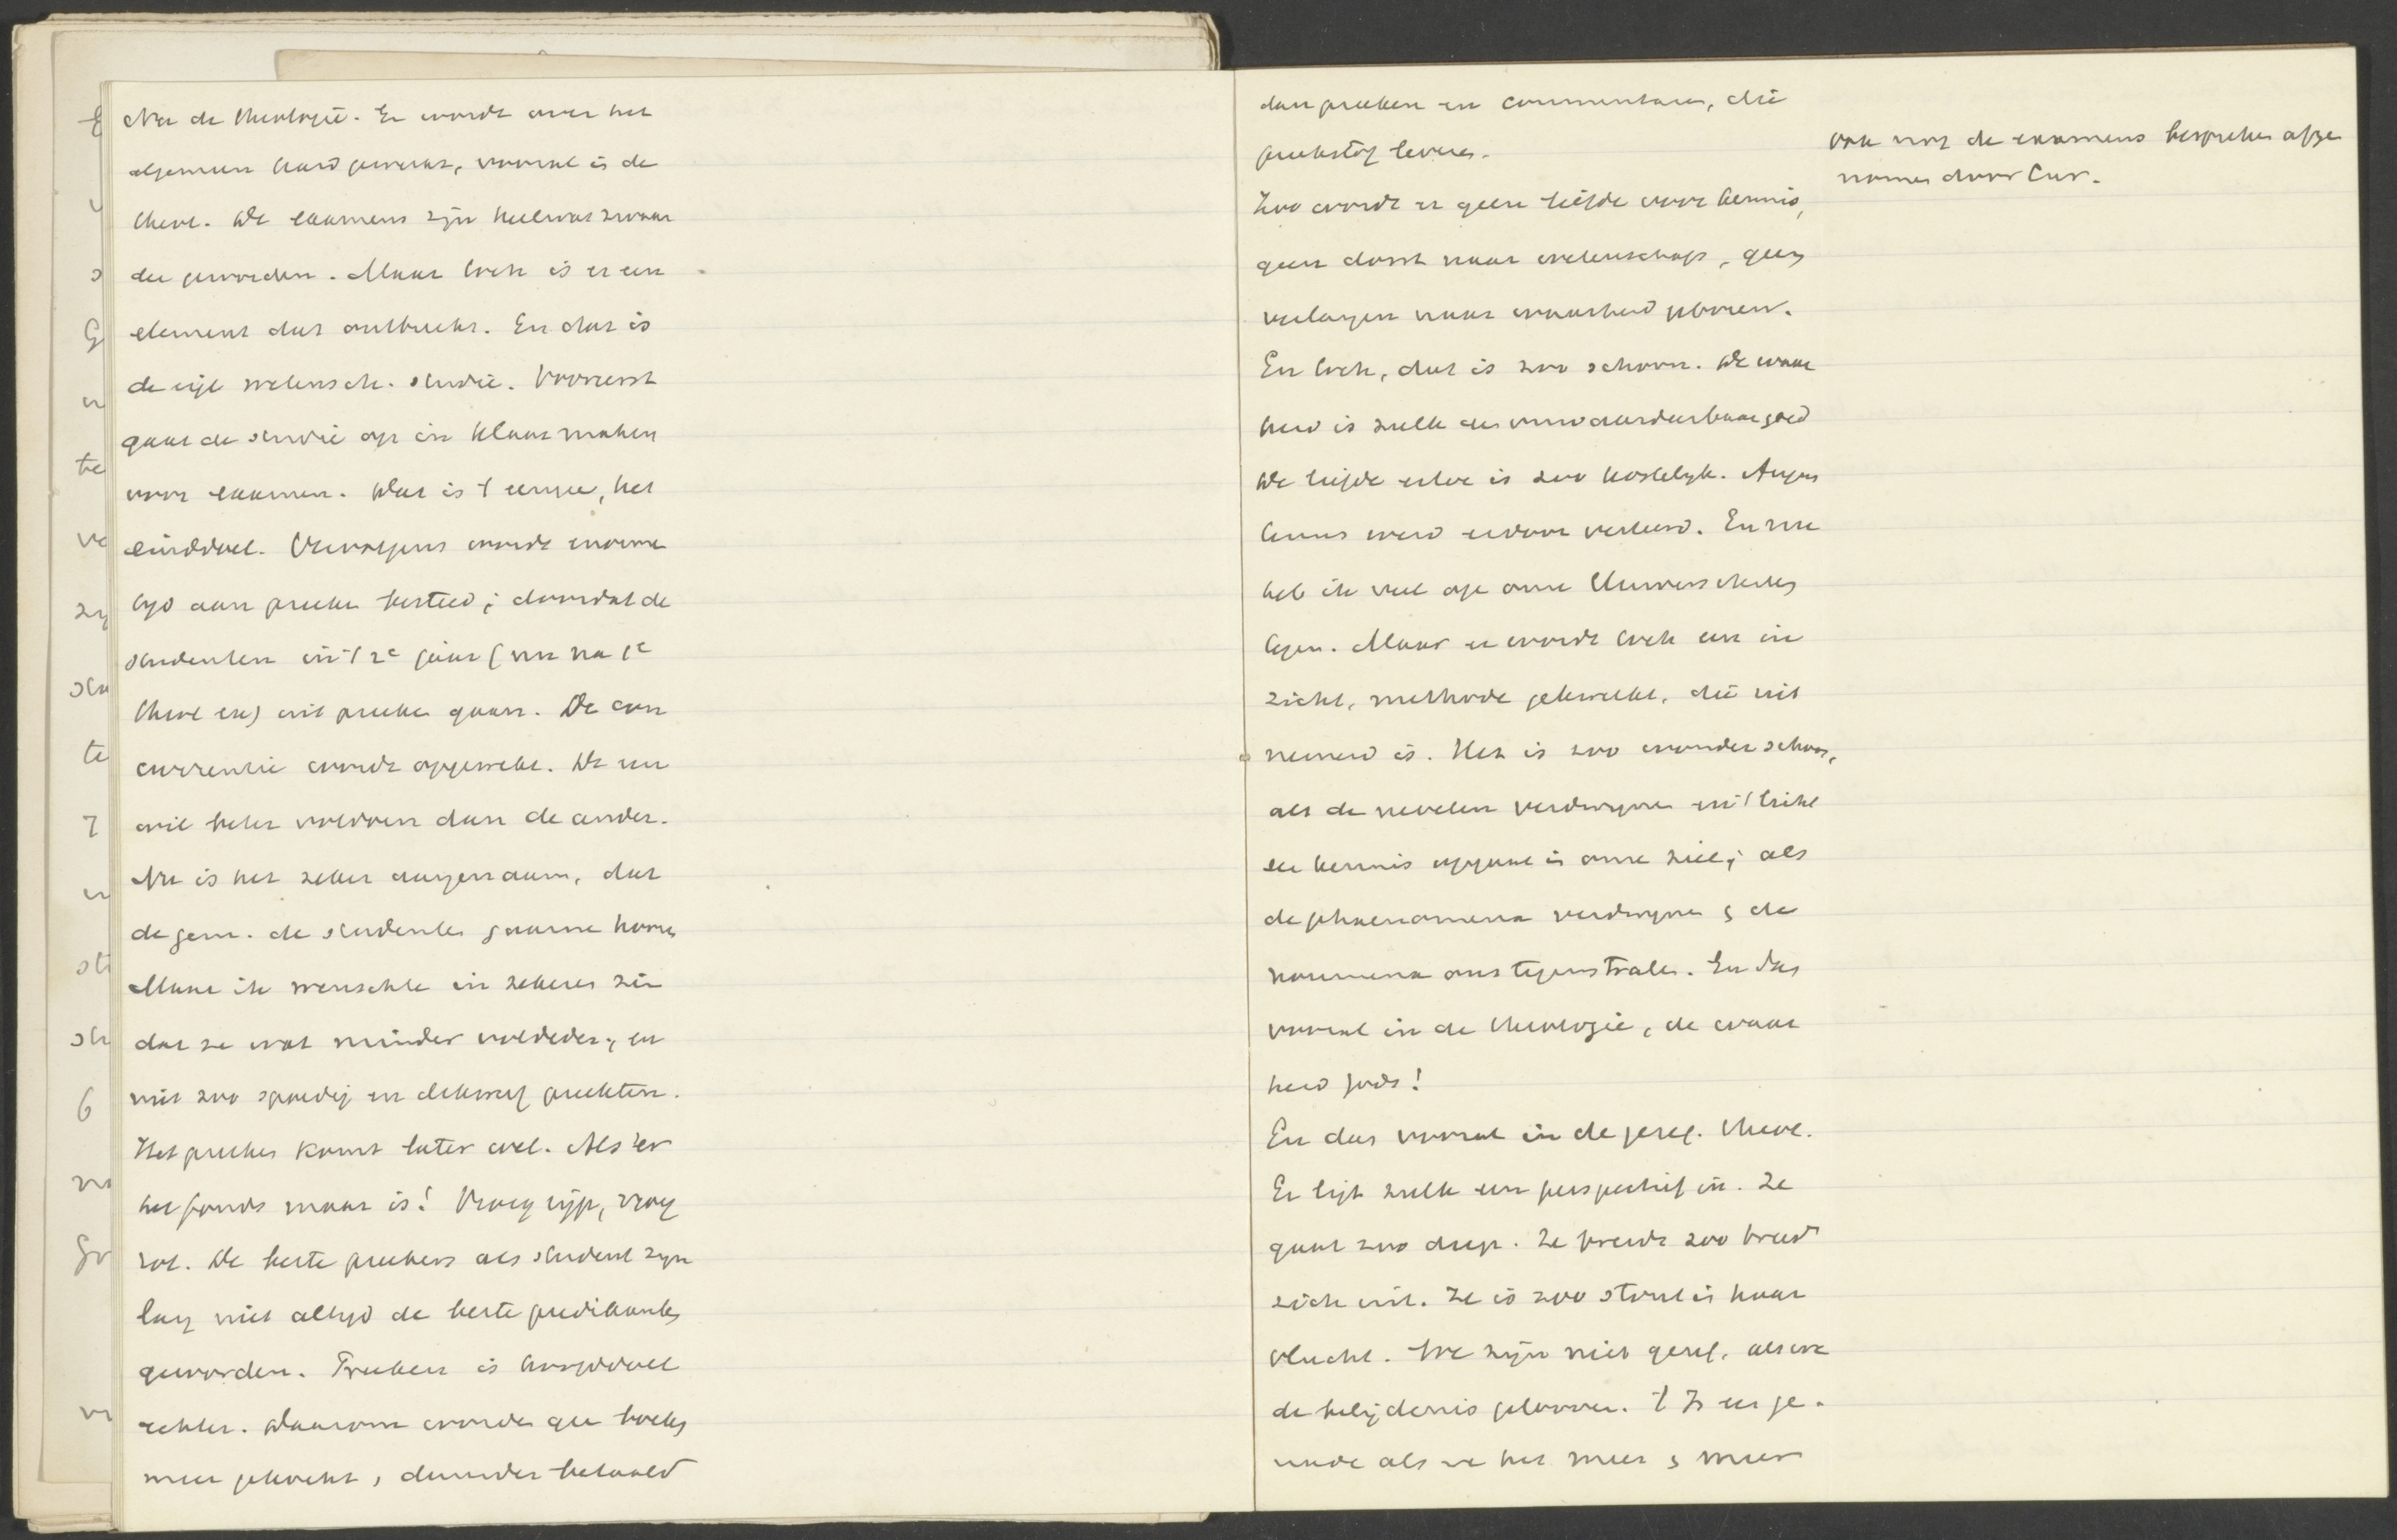 Nu de theologie. Er wordt over het
algemeen hard gewerkt, vooral in de
theol. De examens zijn heel wat zwaar
der geworden. Maar toch is er een
element dat ontbreekt. En dat is
de eigl wetensch. studie. Vooreerst
gaat de studie op in klaar maken
voor examen. Dat is 't eenige, het
einddoel. Vervolgens wordt enorme
tijd aan preeken besteed; doordat de
studenten in 't 2e jaar (nu na 1e
theol ex) uit preeken gaan. De con
currentie wordt opgewekt. De een
wil beter voldoen dan de ander.
Nu is het zeker aangenaam, dat
de gem. de studenten gaarne hooren
Maar ik wenschte in zekeren zin
dat ze wat minder voldeden; en
niet zoo spoedig en dikwerf preekten.
Het preeken komt later wel. Als er
het fonds maar is! Vroeg rijp, vroeg
rot. De beste preekers als student zijn
lang niet altijd de beste predikanten
geworden. Preeken is hoofddoel
echter. Daarom worden geen boeken
meer gekocht, duurder betaald
dan preeken en commentaren, die
preekstof leveren.
ook nog de examens bespreken afge
nomen door Cur.
Zoo wordt er geen liefde voor kennis,
geen dorst naar wetenschap, geen
verlangen naar waarheid geboren.
En toch, dat is zoo schoon. De waar
heid is zulk een onwaardeerbaar goed
De liefde ertoe is zoo kostelijk. Augus
tinus werd erdoor verteerd. En nu
heb ik veel op onze Universiteiten
tegen. Maar er wordt toch een in
zicht, methode gekweekt, die uit
nemend is. Het is zoo wonderschoon,
als de nevelen verdwijnen en 't licht
der kennis opgaat in onze ziel; als
de phaenomena verdwijnen & de
noumena ons tegenstralen. En dat
vooral in de theologie, de waar
heid Gods!
En dat vooral in de geref. theol.
Er ligt zulk een perspectief in. Ze
gaat zoo diep. Ze breidt zoo breed
zich uit. Ze is zoo stout in haar
vlucht. We zijn niet geref. als we
de belijdenis gelooven. 't Is een ge-
nade als we het meer & meer